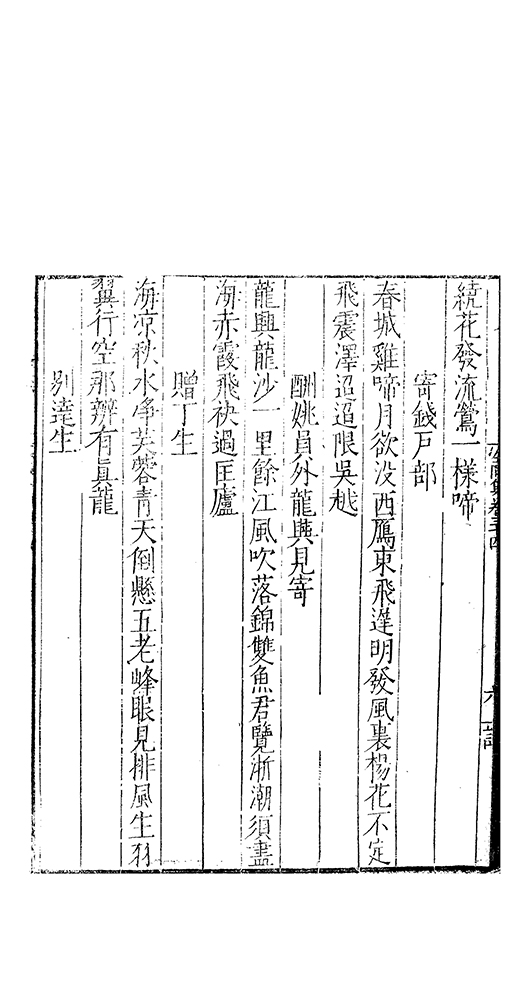 集卷三十四
六
繞花發流鶯一樣啼
寄錢戶部
春城雞啼月欲没西鴈東飛逹明發風裏楊花不定
飛震澤迢迢限吳越
酬姚員外龍興見寄
龍興龍沙一里餘江風吹落錦雙魚君覽浙潮須盡
海赤霞飛袂過匡廬
贈丁生
海凉秋水净芙蓉青天倒懸五老峰眼見排風生羽
翼行空那辨有眞龍
别逹生